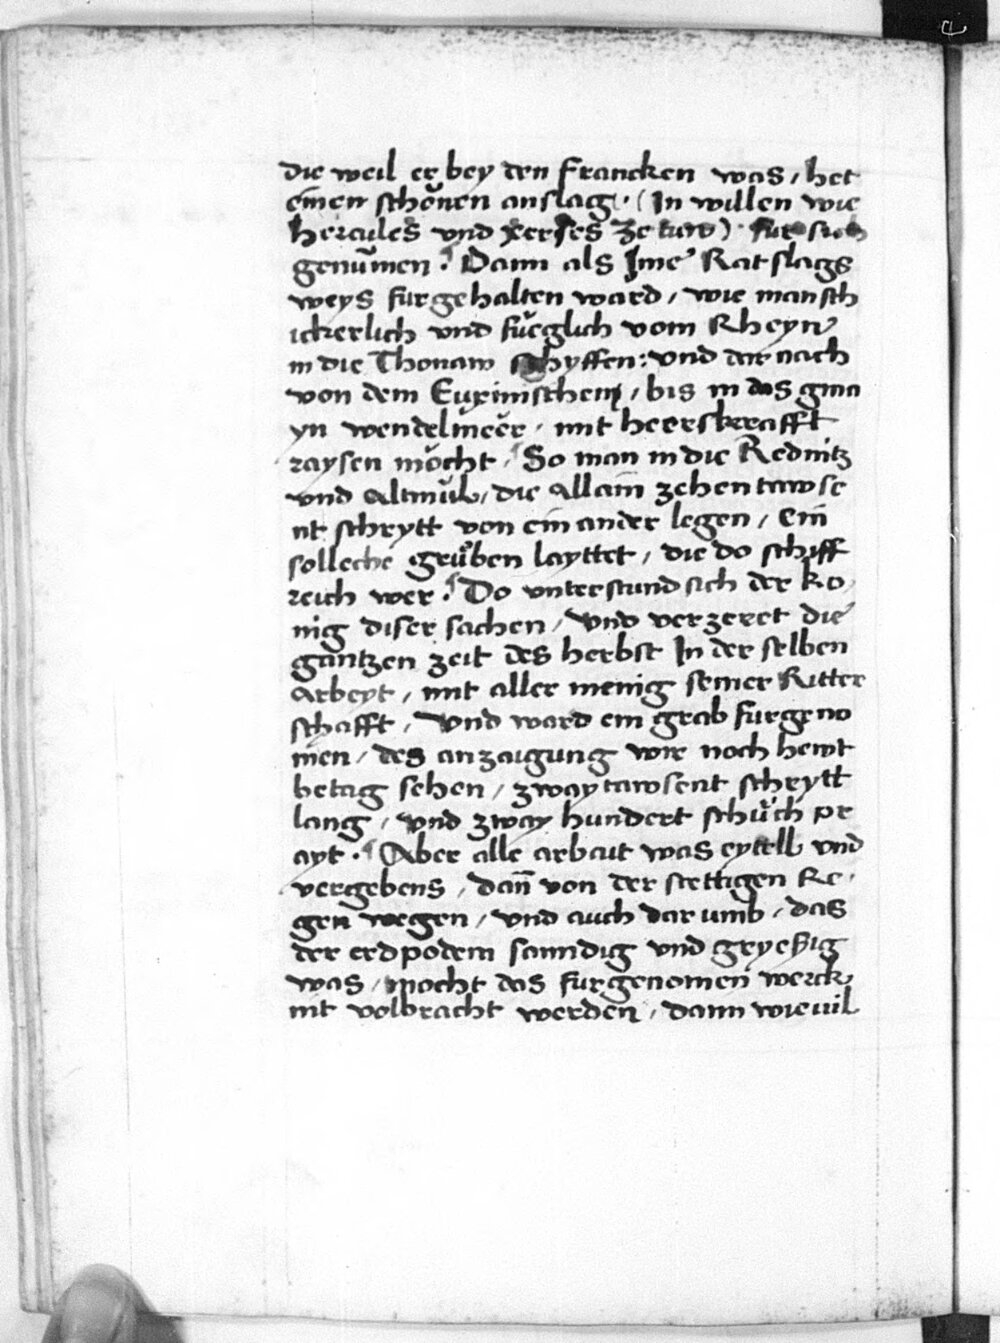 die weil er bey den Francken was / het
einen schönen anslag · (In willen wie
hercules vnd xerses ze turn) · fur sich
genūmen · Dann als Jme Ratslags
weys furgehalten ward / wie mansch
ickerlich vnd fůeglich vom Rheyn
in die Thonaw schyffen : vnd dar nach
von dem Euxinischem / bis in das gma
yn wendelmeer / mit heerskrafft
raysen möcht / So man in die Rednitz
vnd Altmůl / die Allain zehentawse
nt schrytt von ein ander legen / Ein
solleche grůben layttet / die do schiff
reich wer · Do vnterstund sich der ko
nig diser sachen / vnd verzeret die
gantzen zeit des herbst In der selben
Arbeyt / mit aller menig seiner Ritter
schafft / vnd ward ein grab furgeno
men / des anzaigung wir noch hewt
betag sehen / zwaytawsent schrytt
lang / vnd zway hundert schůch pr
ayt · Aber alle arbait was eytell vnd
vergebens / dañ von der stettigen Re
gen wegen / vnd auch dar umb / das
der erdpodem sanndig vnd gryeßig
was / mocht das furgenomen werck
nit volbracht werden / dann wieuil